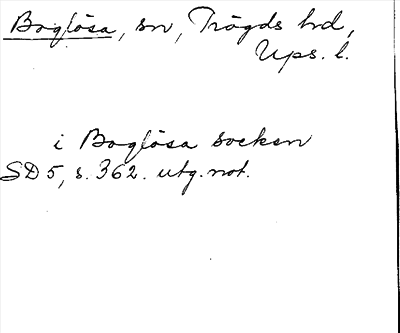 Boglösa, sn, Trögds hd,
Ups. l.
i Boglösa socken
SD 5, s. 362. utg. not.